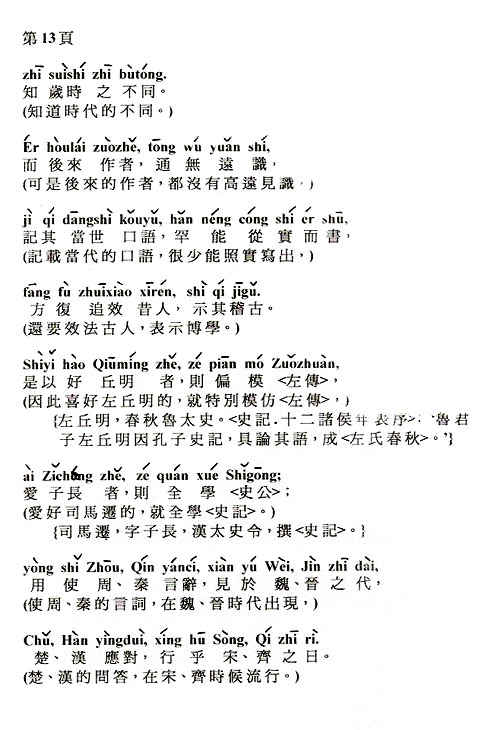 第13頁
zhī suìshí zhī bùtóng.
知 歲時 之 不同。
(知道時代的不同。)
Ér hòulái zuòzhě, tōng wú yuǎn shí,
而 後來 作者，通 無 遠 識，
(可是後來的作者，都沒有高遠見識，)
jì qí dāngshì kǒuyǔ, hǎn néng cóng shí ér shū,
記其 當世 口語，罕 能 從 實 而 書，
(記載當代的口語，很少能照實寫出，)
fāng fù zhuīxiào xīrén, shì qí jīgǔ.
方 復 追效 昔人，示其稽古。
(還要效法古人，表示博學。)
Shìyǐ hào Qiūmíng zhě, zé piān mó Zuǒzhuàn,
是以好 丘明 者，則偏 模 <左傳>，
(因此喜好左丘明的，就特別模仿<左傳>，)
{左丘明，春秋魯太史。<史記.十二諸侯年表序>：‘魯君
子左丘明因孔子史記，具論其語，成<左氏春秋>。’}
ài Zǐcháng zhě, zé quán xué Shǐgōng;
愛 子長 者，則 全 學 <史公>；
(愛好司馬遷的，就全學<史記>。)
{司馬遷，字子長，漢太史令，撰<史記>。}
yòng shǐ Zhōu, Qín yáncí, xiàn yú Wèi, Jìn zhī dài,
用 使 周、秦 言辭，見 於 魏、晉 之 代，
(使周、秦的言詞，在魏、晉時代出現，)
Chǔ, Hàn yìngduì, xíng hū Sòng, Qí zhī rì.
楚、漢 應對，行 乎 宋、齊 之 日。
(楚、漢的問答，在宋、齊時候流行。)